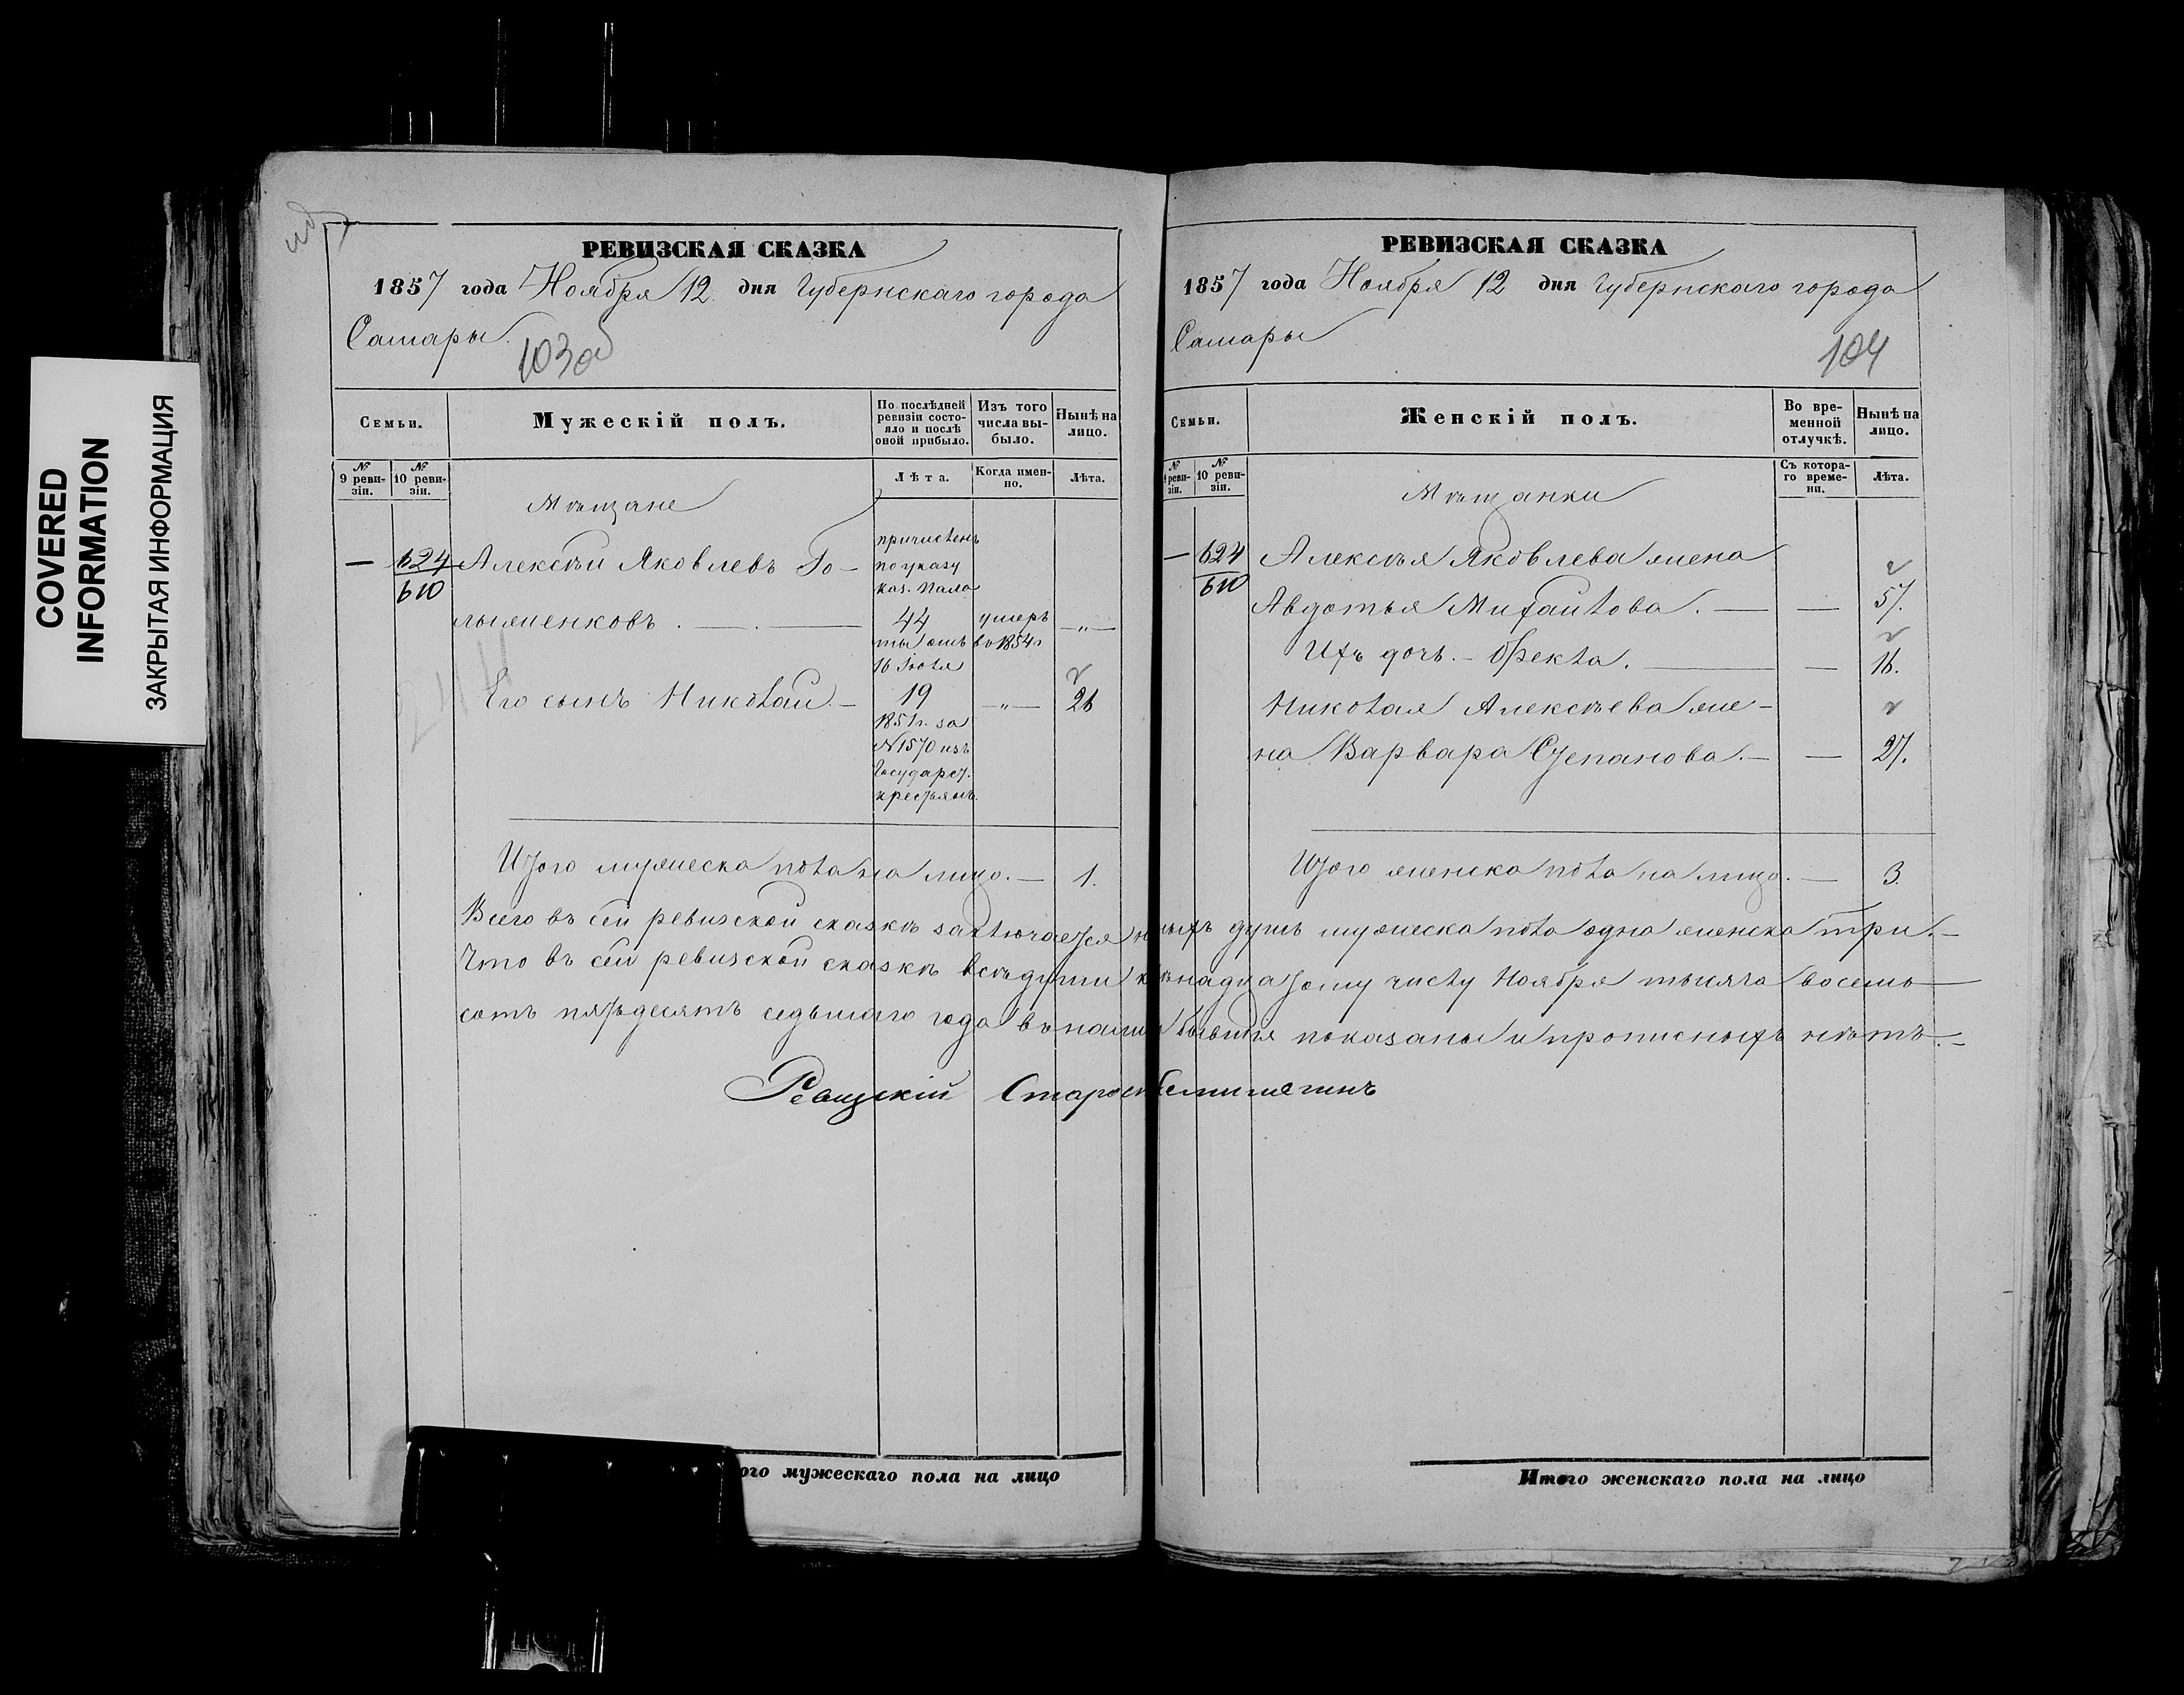 COVERED
INFORMATION
ЗАКРЫТАЯ ИНФОРМАЦИЯ
РЕВИЗСКАЯ СКАЗКА
1857 года Ноября 12 дня Губернскаго города
Самары.
103 об
Семьи.
Мужескій полъ.
По послѣдней ревизіи состояло и послѣ оной прибыло.
Изъ того числа выбыло.
Нынѣ на лицо.
№ 9 ревизіи.
№ 10 ревизіи.
Лѣта.
Когда именно.
Лѣта.
Мѣщане
причисленъ
— 624 Алексѣй Яковлевъ Го-
610
по указу
каз. Пала
льменковъ. — 44 умеръ —„—
ты отъ въ 1854 г.
16 Іюля
Его сынъ Николай. — 19 —„— 26
1851 г. за
№ 1570 изъ
Государст.
крестьянъ.
Итого мужеска пола на лицо. — 1.
РЕВИЗСКАЯ СКАЗКА
1857 года Ноября 12 дня Губернскаго города
Самары
104
Семьи.
Женскій полъ.
Во временной отлучкѣ.
Нынѣ на лицо.
№ 9 ревизіи.
№ 10 ревизіи.
Съ котораго времени.
Лѣта.
Мѣщанки
— 624 Алексѣя Яковлева жена
610
Авдотья Михайлова. — — 57.
Ихъ дочь. — Ѳекла. — — 16.
Николая Алексѣева же-
на Варвара Степанова. — — 27.
Итого женска пола на лицо. — 3.
Всего въ сей ревизской сказкѣ заключается душъ мужеска пола одна женска три. —
Что въ сей ревизской сказкѣ всѣ души Ноября тысяча восемь
сотъ пятьдесятъ седьмаго года въ показаны и прописныхъ нѣтъ. —
Староста
Итого мужескаго пола на лицо
Итого женскаго пола на лицо